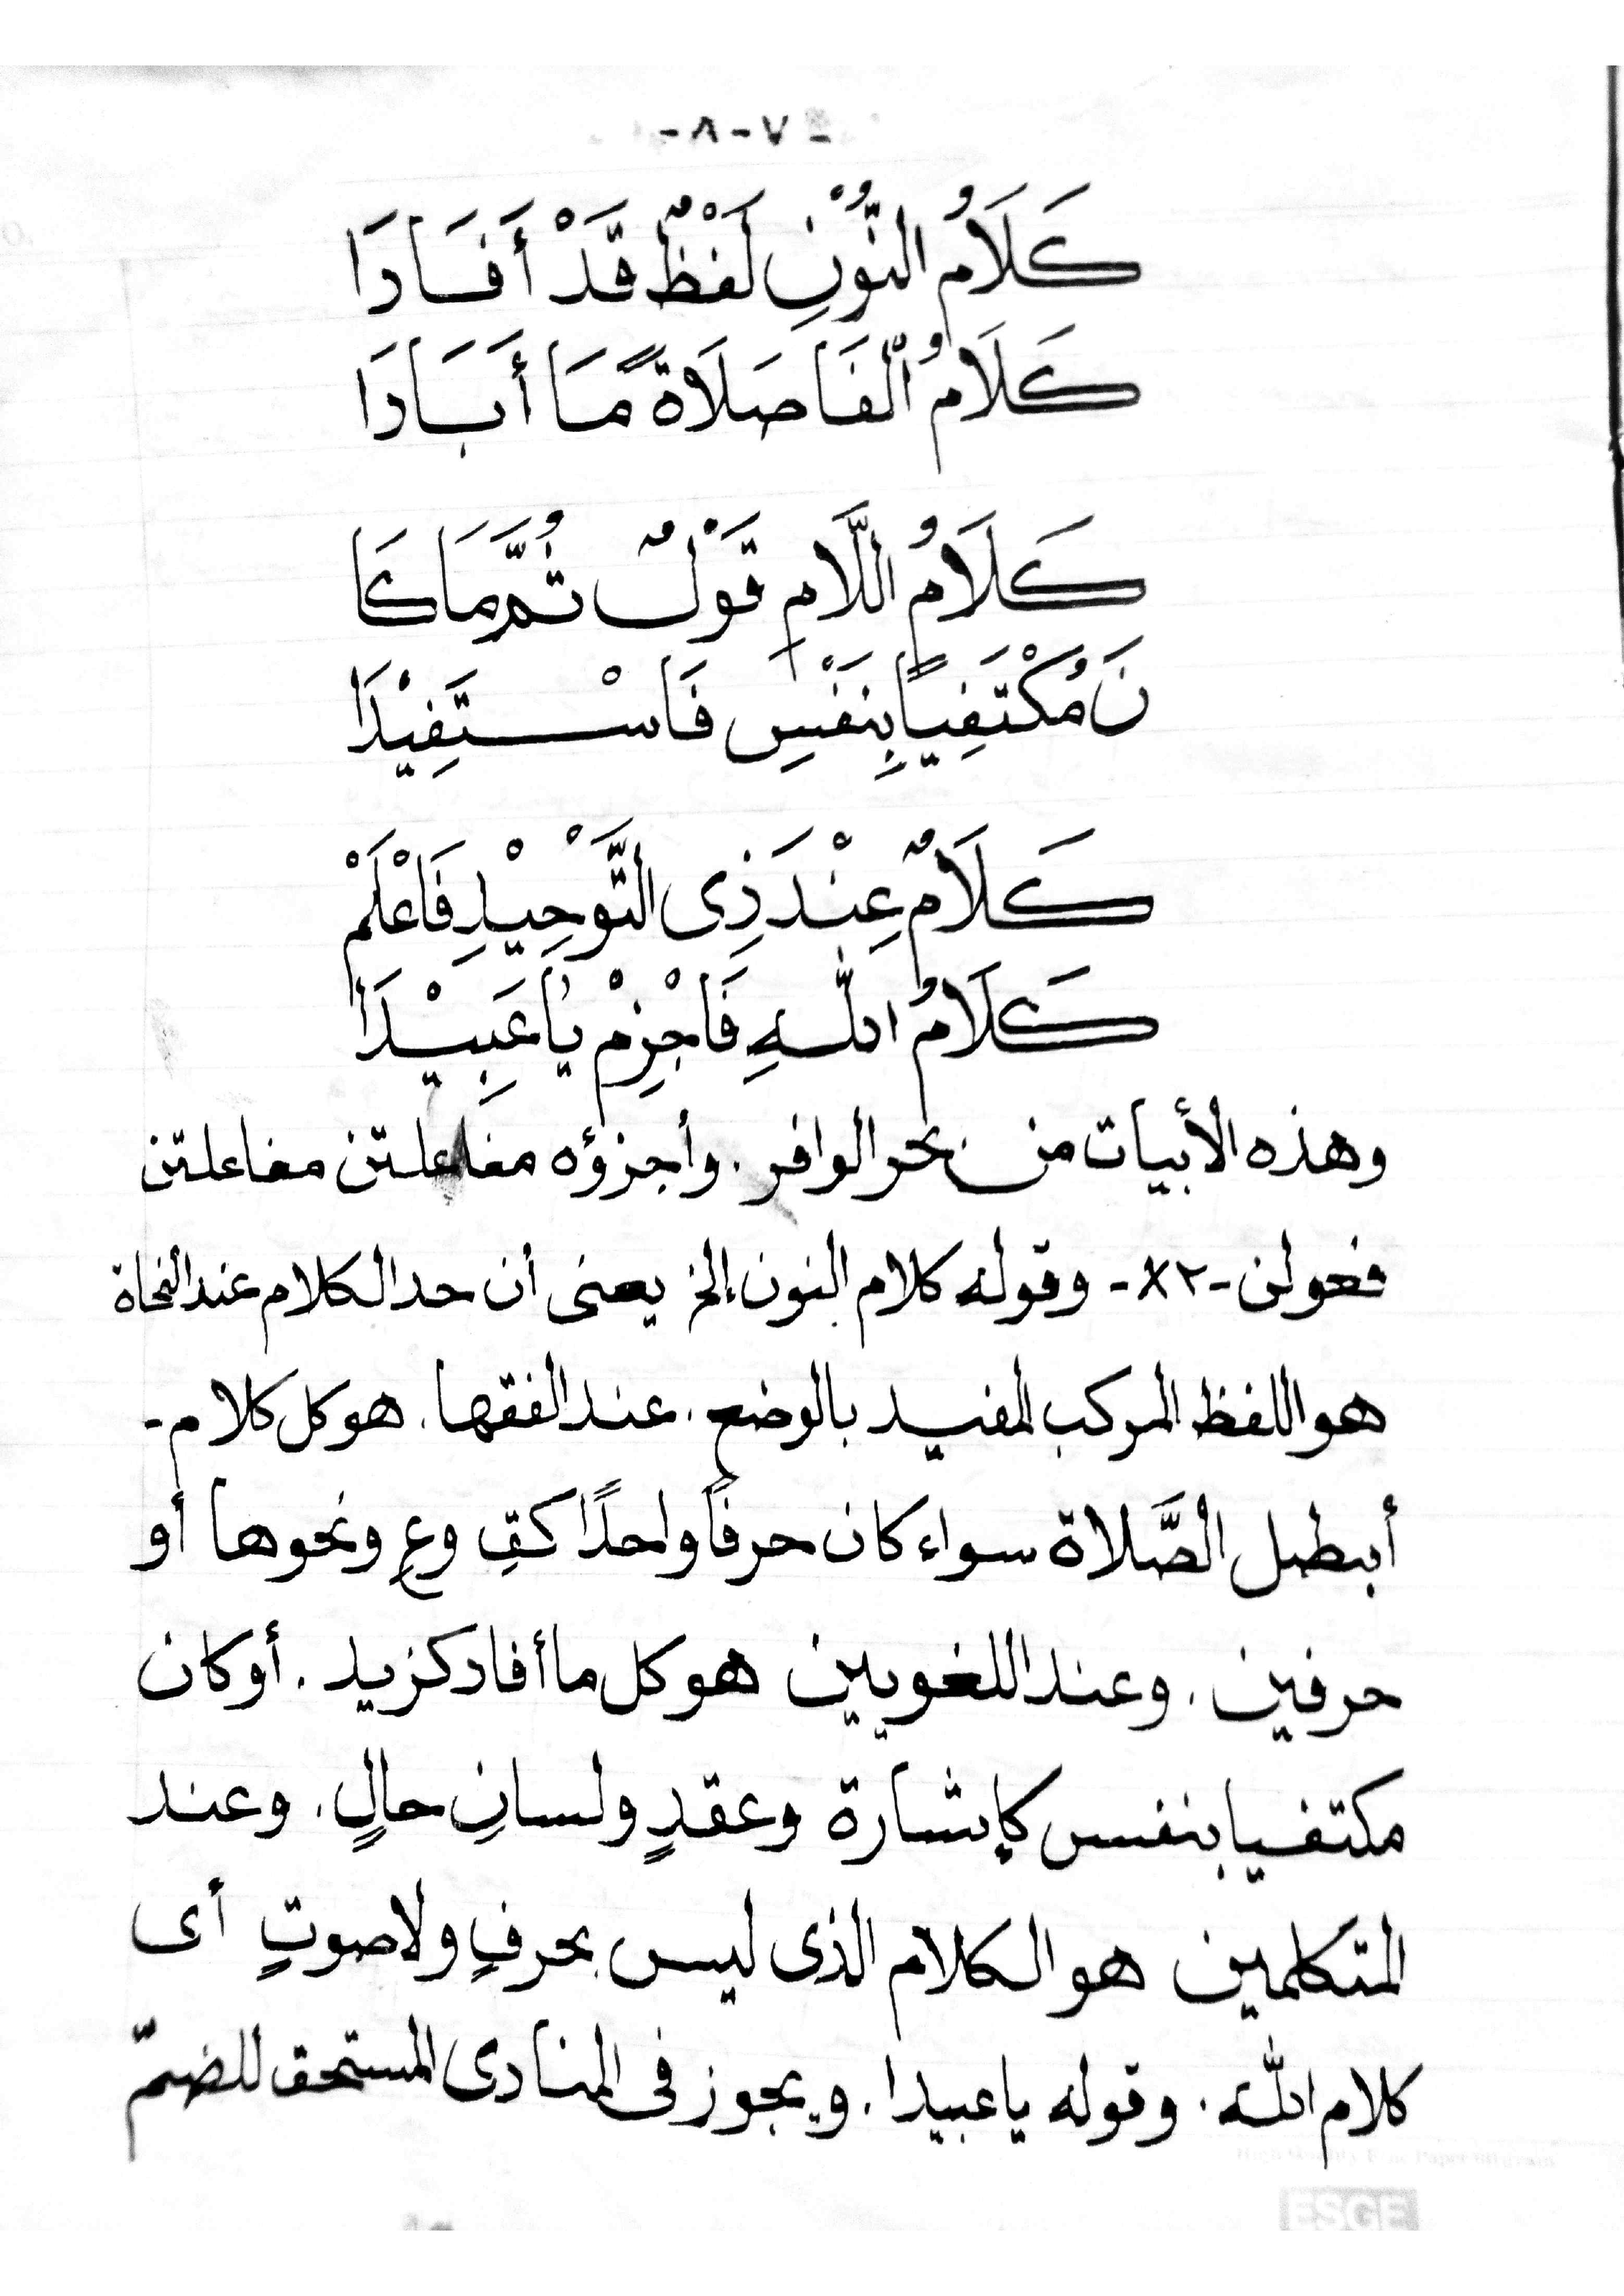 -٨-٧-
كَلَامُ النُّوْنِ لَفْظٌ قَدْ أَفَادَا
كَلَامُ الْفَا صَلَاةً مَّا أَبَادَا
كَلَامُ اللَّامِ قَوْلٌ تُمَّ مَا كَا
نَ مُكْتَفِيًا بِنَفْسِ فَاسْتَفِيْدَا
كَلَامٌ عِنْدَ ذِى التَّوْحِيْدِ فَاعْلَمْ
كَلَامُ اللهِ فَاجْزِمْ يَا عَبِيْدَا
وهذه الأبيات من بحر الوافر . وأجزؤه مفاعلتن مفاعلتن
فعولن -٨٢- وقوله كلام النون إلخ يعنى أن حد الكلام عند النحاة
هو اللفظ المركب المفيد بالوضع . عند الفقها . هو كل كلام -
أبطل الصَّلاة سواء كان حرفًا واحدًا كقِ وعِ ونحوها أو
حرفين . وعند اللغويين هو كل ما أفاد كزيد . أو كان
مكتفيا بنفس كإشارة وعقدٍ ولسانِ حالٍ . وعند
المتكلمين هو الكلام الذى ليس بحرفٍ ولا صوتٍ أى
كلام الله . وقوله يا عبيدا . ويجوز فى المنادى المستحق للضمّ
ESGE